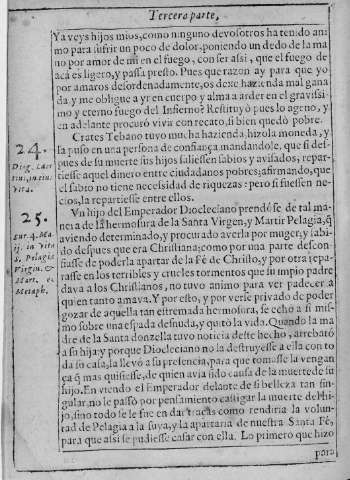 Tercera parte,
Ya veys hijos mios, como ninguno de vosotros ha tenido ani
mo para sufrir un poco de dolor, poniendo un dedo de la ma
no por amor de mi en el fuego, con ser assi, que el fuego de
acá es ligero, y passa presto. Pues que razon ay para que yo
por amaros desordenadamente, os dexe hazienda mal gana
da, y me obligue a yr en cuerpo y alma a arder en el gravissi
mo y eterno fuego del Infierno? Restituyó pues lo ageno, y
en adelante procuró vivir con recato, si bien quedò pobre.
24.
Diog. Laer
tius, in eius
vita.
Crates Tebano tuvo mucha hazienda, hizola moneda, y
la puso en una persona de confiança, mandandole, que si des-
pues de su muerte sus hijos saliessen sabios y avisados, repar-
tiesse aquel dinero entre ciudadanos pobres; afirmando, que
el sabio no tiene necesidad de riquezas: pero si fuessen ne-
cios, la repartiesse entre ellos.
25.
Sur. 4. Ma
ij. in vita
s. Pelagiæ
Virgin. &
Mart. ex
Metaph.
Un hijo del Emperador Diocleciano prendóse de tal ma-
nera de la hermosura de la Santa Virgen, y Martir Pelagia, q̃
aviendo determinado, y procurado averla por muger, y sabi-
do despues que era Christiana; como por una parte descon-
fiasse de poderla apartar de la Fé de Christo, y por otra repa-
rasse en los terribles y crueles tormentos que su impio padre
dava a los Christianos, no tuvo animo para ver padecer a
quien tanto amava. Y por esto, y por verse privado de poder
gozar de aquella tan estremada hermosura, se echo a si mis-
mo sobre una espada desnuda, y quitò la vida. Quando la ma
dre de la Santa donzella tuvo noticia deste hecho, arrebatò
a su hija y porque Diocleciano no la destruyesse a ella con to
da su casa, la llevó a su presencia, para que tomasse la vengan
ça q̃ mas quisiesse, de quien avia sido causa de la muerte de su
hijo. En viendo el Emperador delante de si belleza tan sin-
gular, no le passò por pensamiento castigar la muerte del hi-
jo, sino todo se le fue en dar traças como rendiria la volun-
tad de Pelagia a la suya, y la apartaria de nuestra Santa Fé,
para que assi se pudiesse casar con ella. Lo primero que hizo
para